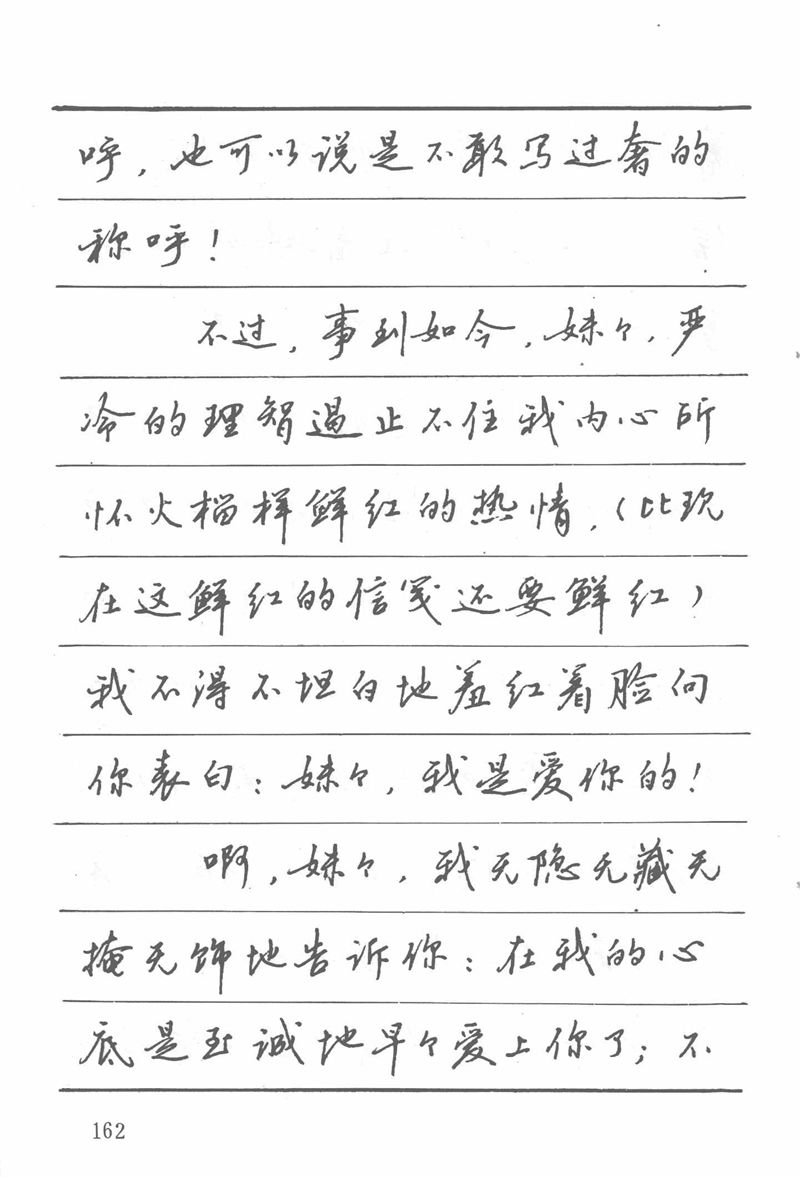 呼，也可以说是不敢写过奢的
称呼！
不过，事到如今，妹々，严
冷的理智遏止不住我内心所
怀火榴样鲜红的热情，（比现
在这鲜红的信笺还要鲜红）
我不得不坦白地羞红着脸向
你表白：妹々，我是爱你的！
啊，妹々，我无隐无藏无
掩无饰地告诉你：在我的心
底是至诚地早々爱上你了；不
162